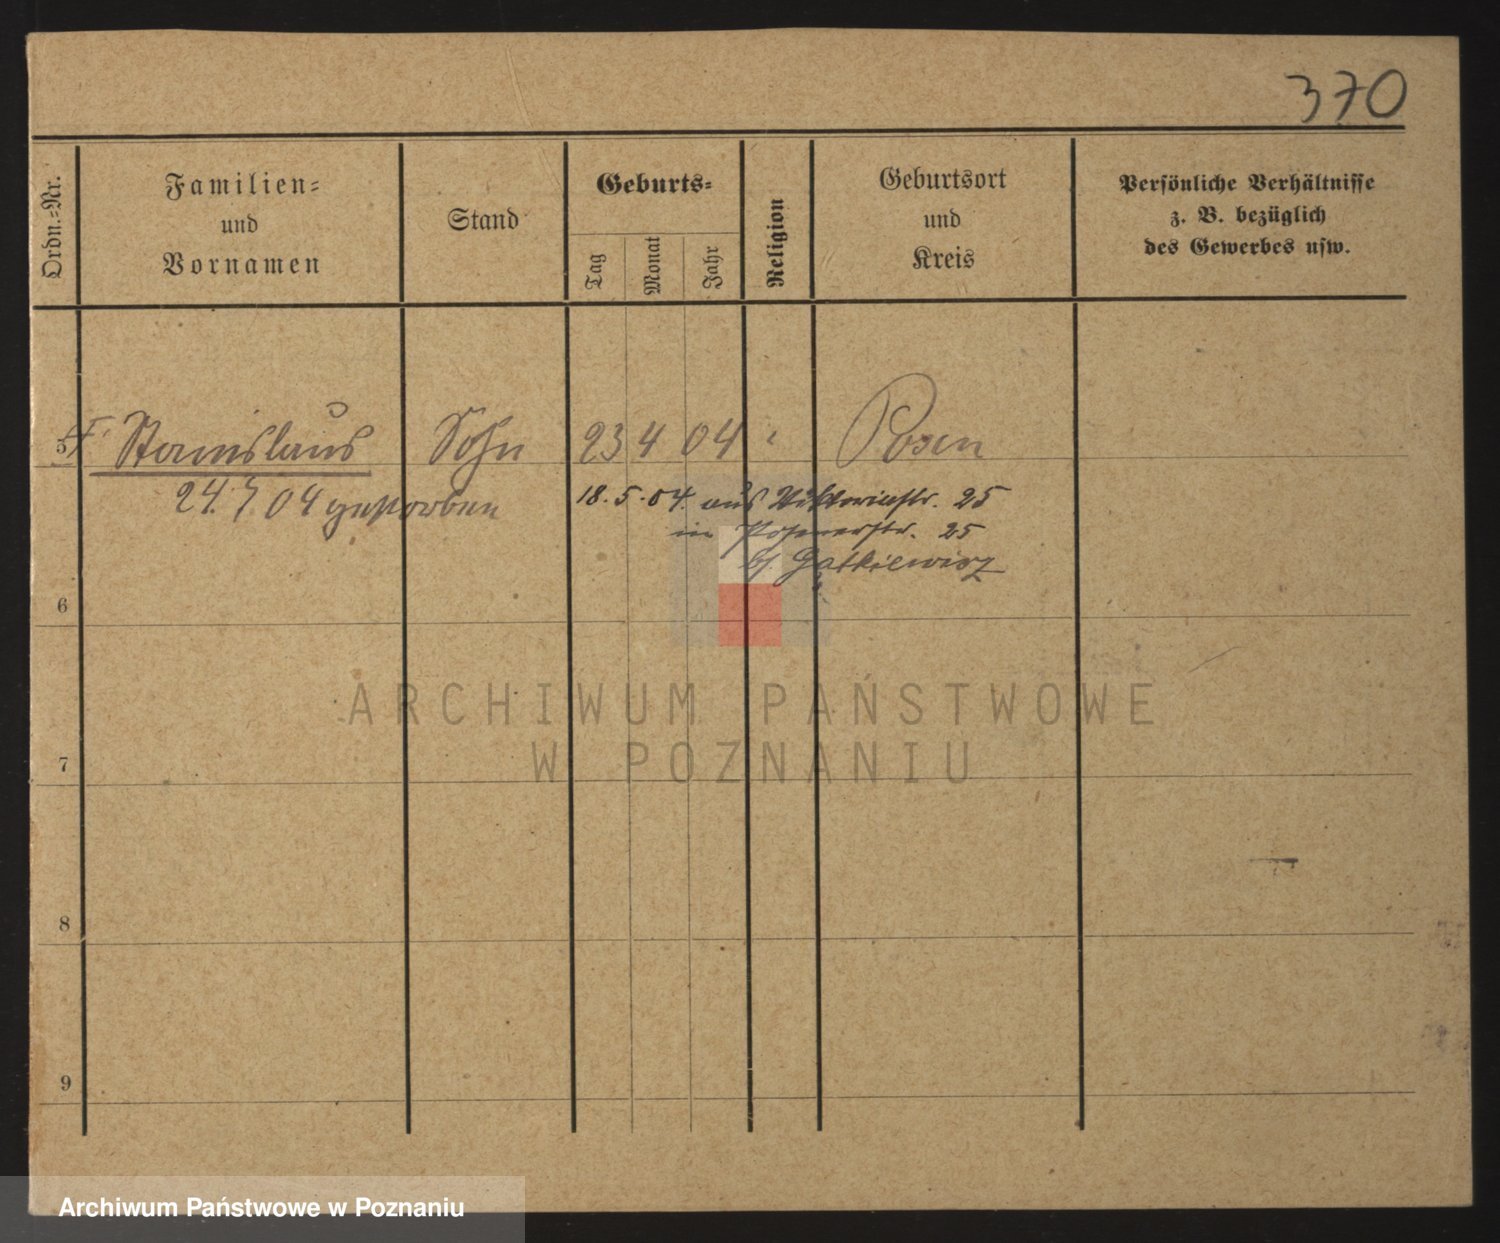 370
Ordn.-Nr.
Familien-
und
Vornamen
Stand
Geburts-
Tag
Monat
Jahr
Religion
Geburtsort
und
Kreis
Persönliche Verhältnisse
z. B. bezüglich
des Gewerbes usw.
5 Stanislaus Sohn 23 4 04 Posen
24. 7. 04 gestorben
18. 5. 04. aus Viktoriastr. 25
in Posenerstr. 25
bs. Gatkiewicz
6
7
8
9
ARCHIWUM PAŃSTWOWE
W POZNANIU
Archiwum Państwowe w Poznaniu